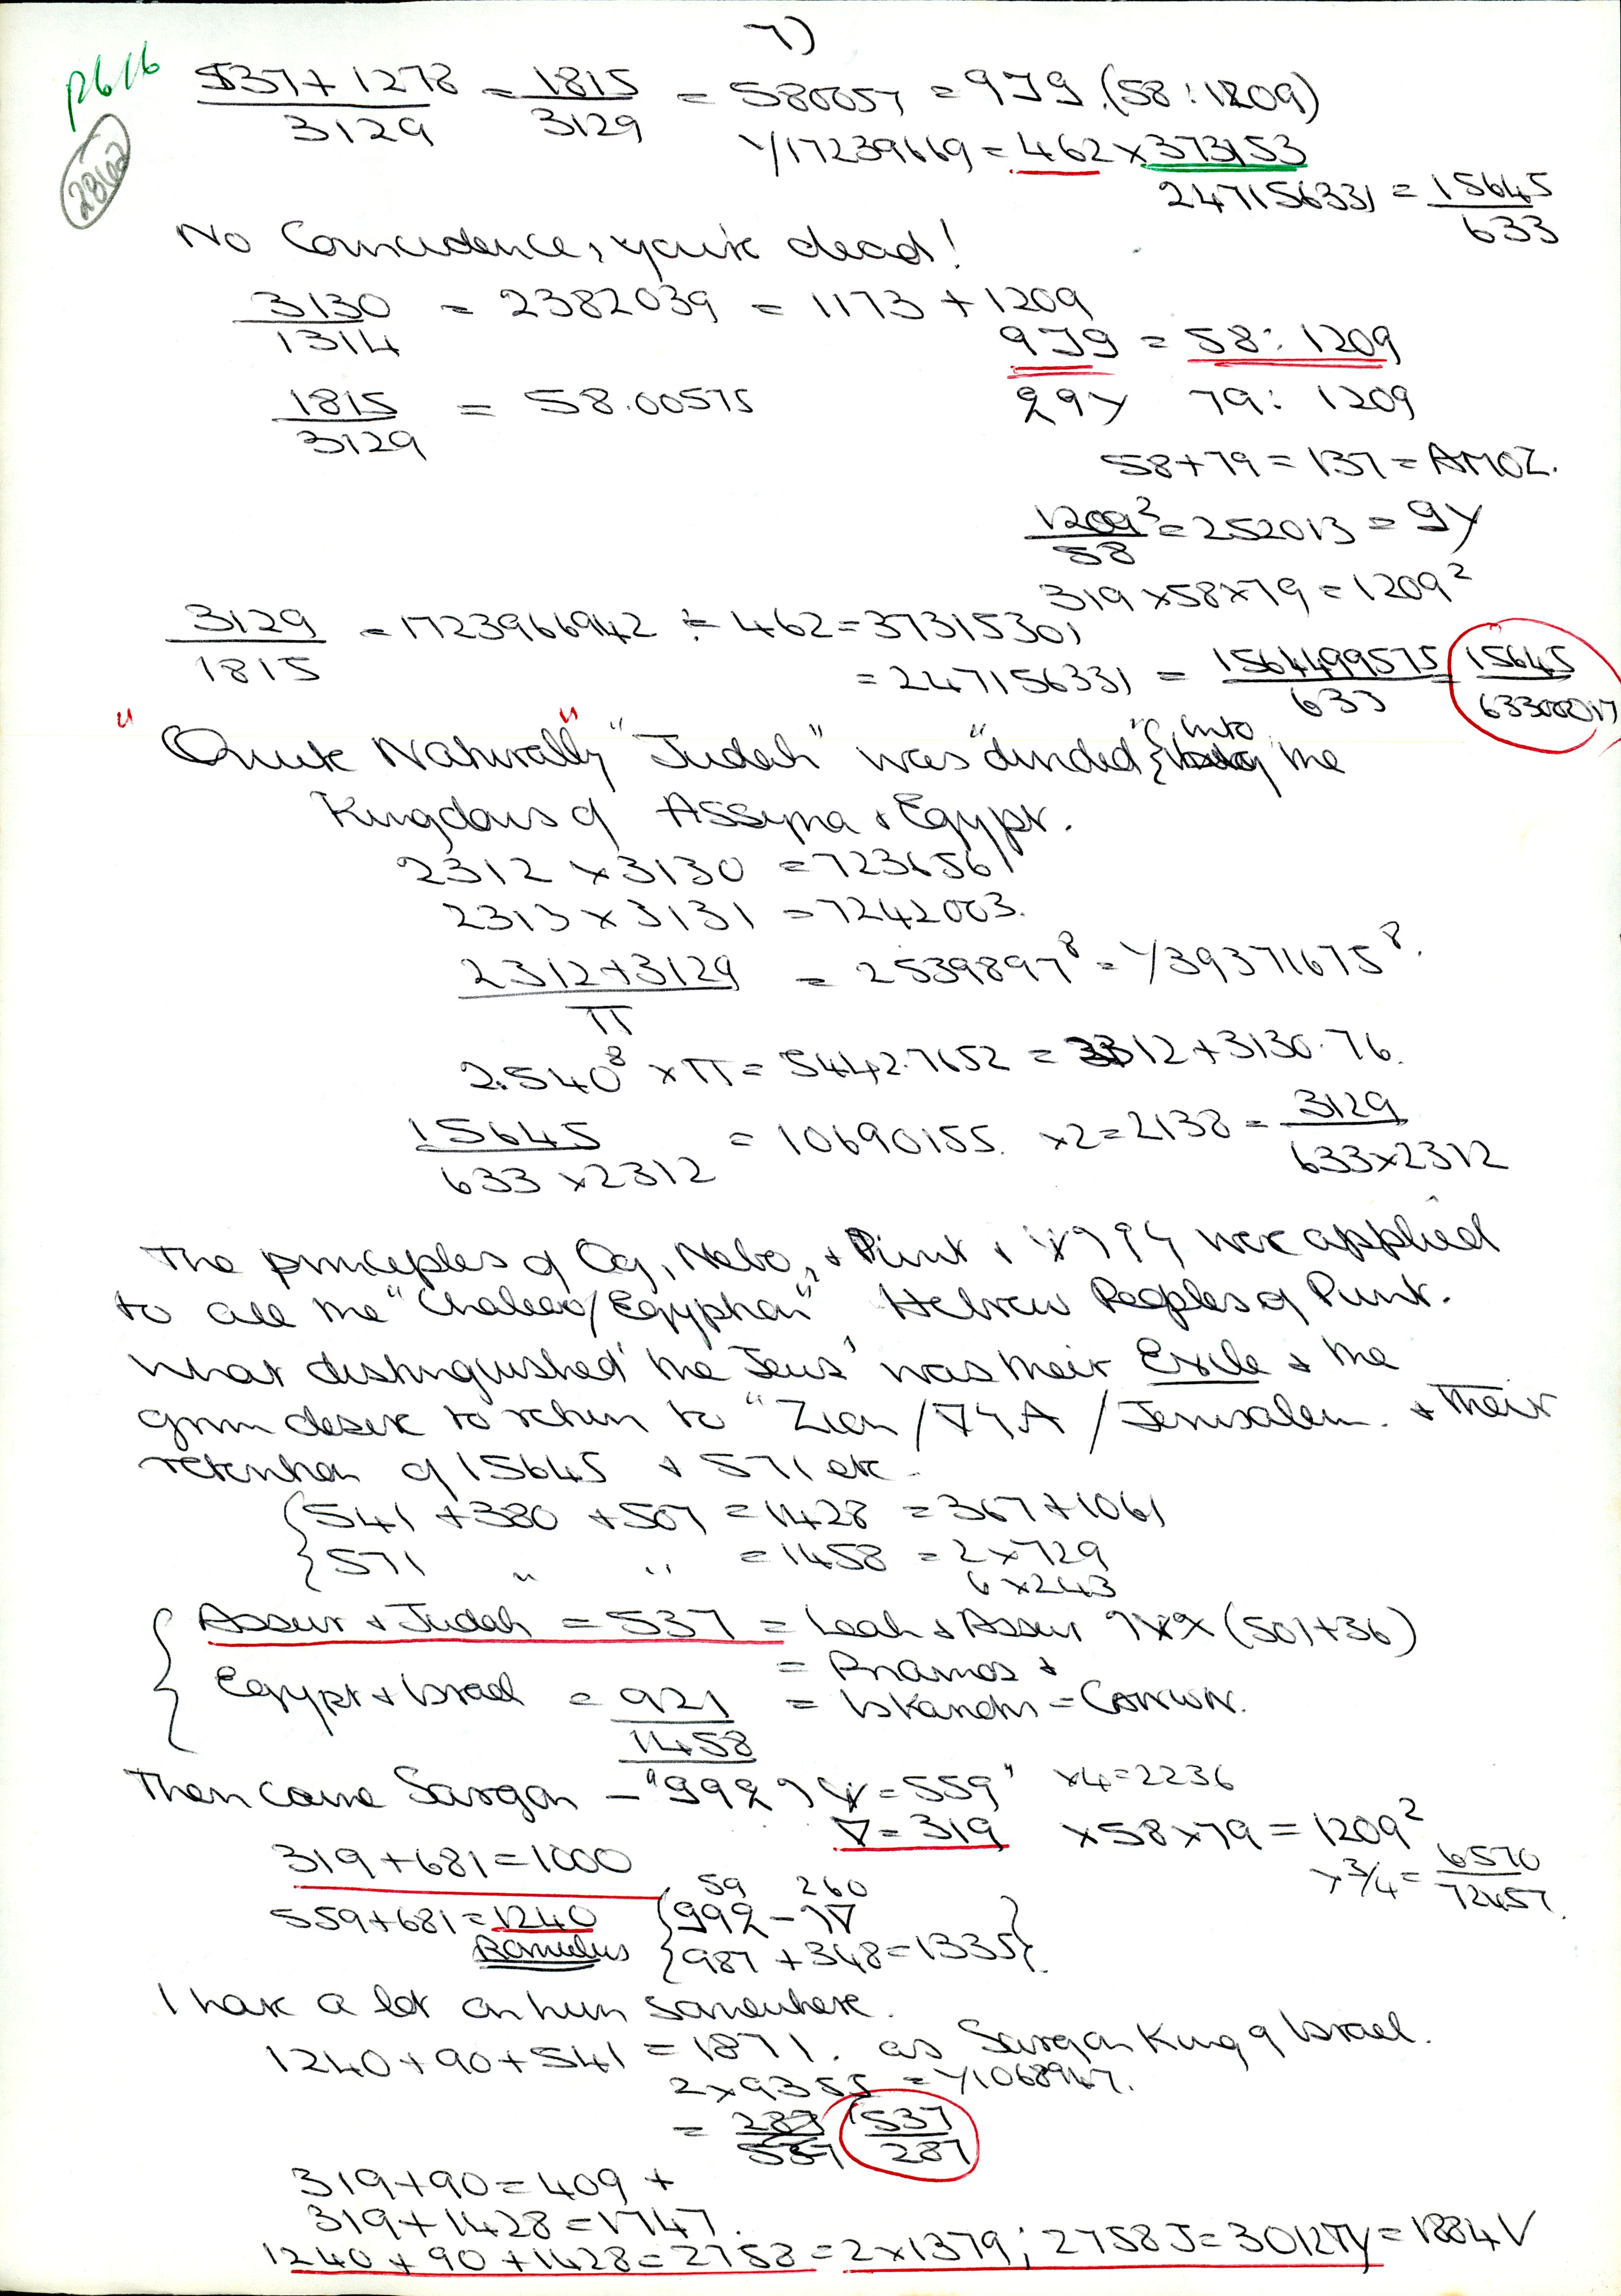 7)
P616
2862
537 + 1278 / 3129 = 1815 / 3129 = 580057 = 979. (58 : 1209)
Y17239669 = 462 x 373153
247156331 = 15645 / 633
No Coincidence, you're dead!
3130 / 1314 = 2382039 = 1173 + 1209
979 = 58 : 1209
1815 / 3129 = 58.00575
29Y 79 : 1209
58 + 79 = 137 = AMOZ.
1209² / 58 = 252013 = 9Y
319 x 58 x 79 = 1209²
3129 / 1815 = 1723966942 ÷ 462 = 37315301
= 247156331 = 1564499575 / 633 = 15645 / 63300017
"Quite Naturally" "Judah" was "divided" into the
Kingdoms of Assyria & Egypt.
2312 x 3130 = 723656
2313 x 3131 = 7242003.
2312 + 3129 / π = 2539897⁸ = Y39371675⁸.
2.540⁸ x π = 5442.7652 = 2312 + 3130.76.
15645 / 633 x 2312 = 10690155. x2 = 2138 = 3129 / 633 x 2312
The principles of Og, Nebo, & Punt & were applied
to all the "Chaldeo/Egyptian" Hebrew Peoples of Punt.
What distinguished 'the Jews' was their Exile & the
grim desire to return to "Zion / / Jerusalem. & Their
retention of 15645 & 571 etc.
541 + 380 + 507 = 1428 = 367 + 1061
571 " " = 1458 = 2 x 729
6 x 243
Assur & Judah = 537 = Leah & Assur (501 + 36)
= Priamos &
Egypt & Israel = 921 = Iskandr = CANWN.
1458
Then came Sargon - "992 = 559" x4 = 2236
∇ = 319 x 58 x 79 = 1209²
x 3/4 = 6570 / 72457
319 + 681 = 1000
59 260
559 + 681 = 1240 992 -
Romulus 987 + 348 = 1335
I have a lot on him somewhere.
1240 + 90 + 541 = 1871. as Sargon King of Israel.
2 x 9355 = Y1068947.
= 287 / 537 537 / 287
319 + 90 = 409 +
319 + 1428 = 1747.
1240 + 90 + 1428 = 2758 = 2 x 1379 ; 2758 J = 3012TY = 1884 V